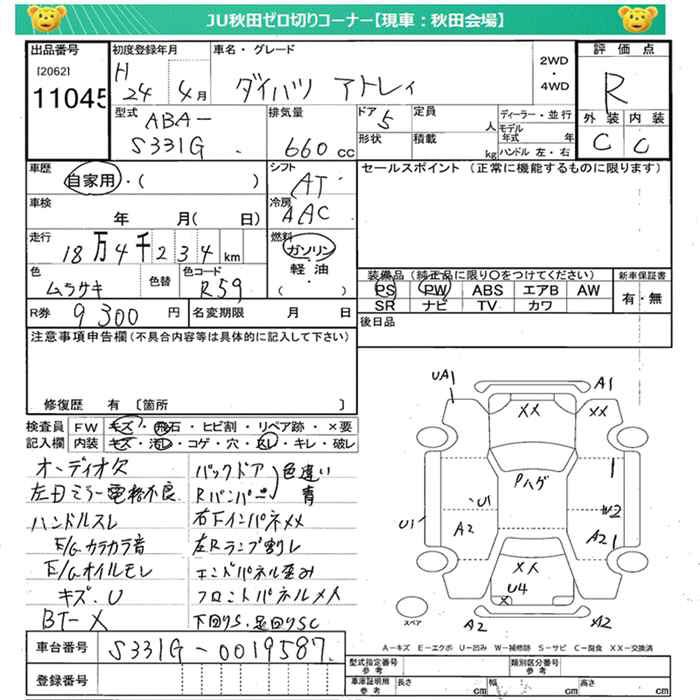 JU秋田ゼロ切りコーナー【現車：秋田会場】
出品番号
[2062]
11045
初度登録年月
H 24 4月
車名・グレード
ダイハツ アトレイ
2WD
・
4WD
評価点
R
外装 内装
C C
型式
ABA-
S331G
排気量
660 cc
ドア 5
形状
定員 人
積載 kg
ディーラー・並行
モデル年式 年
ハンドル 左・右
車歴
自家用・( )
車検
年 月( 日)
走行
18万4千234km
色
ムラサキ
色替
色コード
R59
R券 9300円
名変期限 月 日
シフト
AT
冷房
AAC
燃料
ガソリン
軽油
・( )
セールスポイント（正常に機能するものに限ります）
装備品（純正品に限り〇をつけてください）
PS PW ABS エアB AW
SR ナビ TV カワ
新車保証書
有・無
後日品
注意事項申告欄(不具合内容等は具体的に記入して下さい)
修復歴 有〔箇所 〕
検査員記入欄
FW キズ・飛石・ヒビ割・リペア跡・×要
内装 キズ・汚レ・コゲ・穴・スレ・キレ・破レ
オーディオ欠
左日ミラー電格不良
ハンドルスレ
E/Gカラカラ音
E/Gオイルモレ
キズ・U
BT-X
バックドア
Rバンパー
色違い
青
右下インパネメメ
左Rランプ割レ
エンドパネル歪み
フロントパネルメ人
下回りS、足回りSC
UA1
A1
XX
XX
Pハゲ
1
U1
U1
A2
W2
A2
XX
U4
X
A2
A2
スペア
A－キズ E－エクボ U－凹み W－補修跡 S－サビ C－腐食 XX－交換済
車台番号
S331G-0019587
登録番号
型式指定番号
参考
類別区分番号
参考
車庫証明用
参考
長さ cm
幅 cm
高さ cm